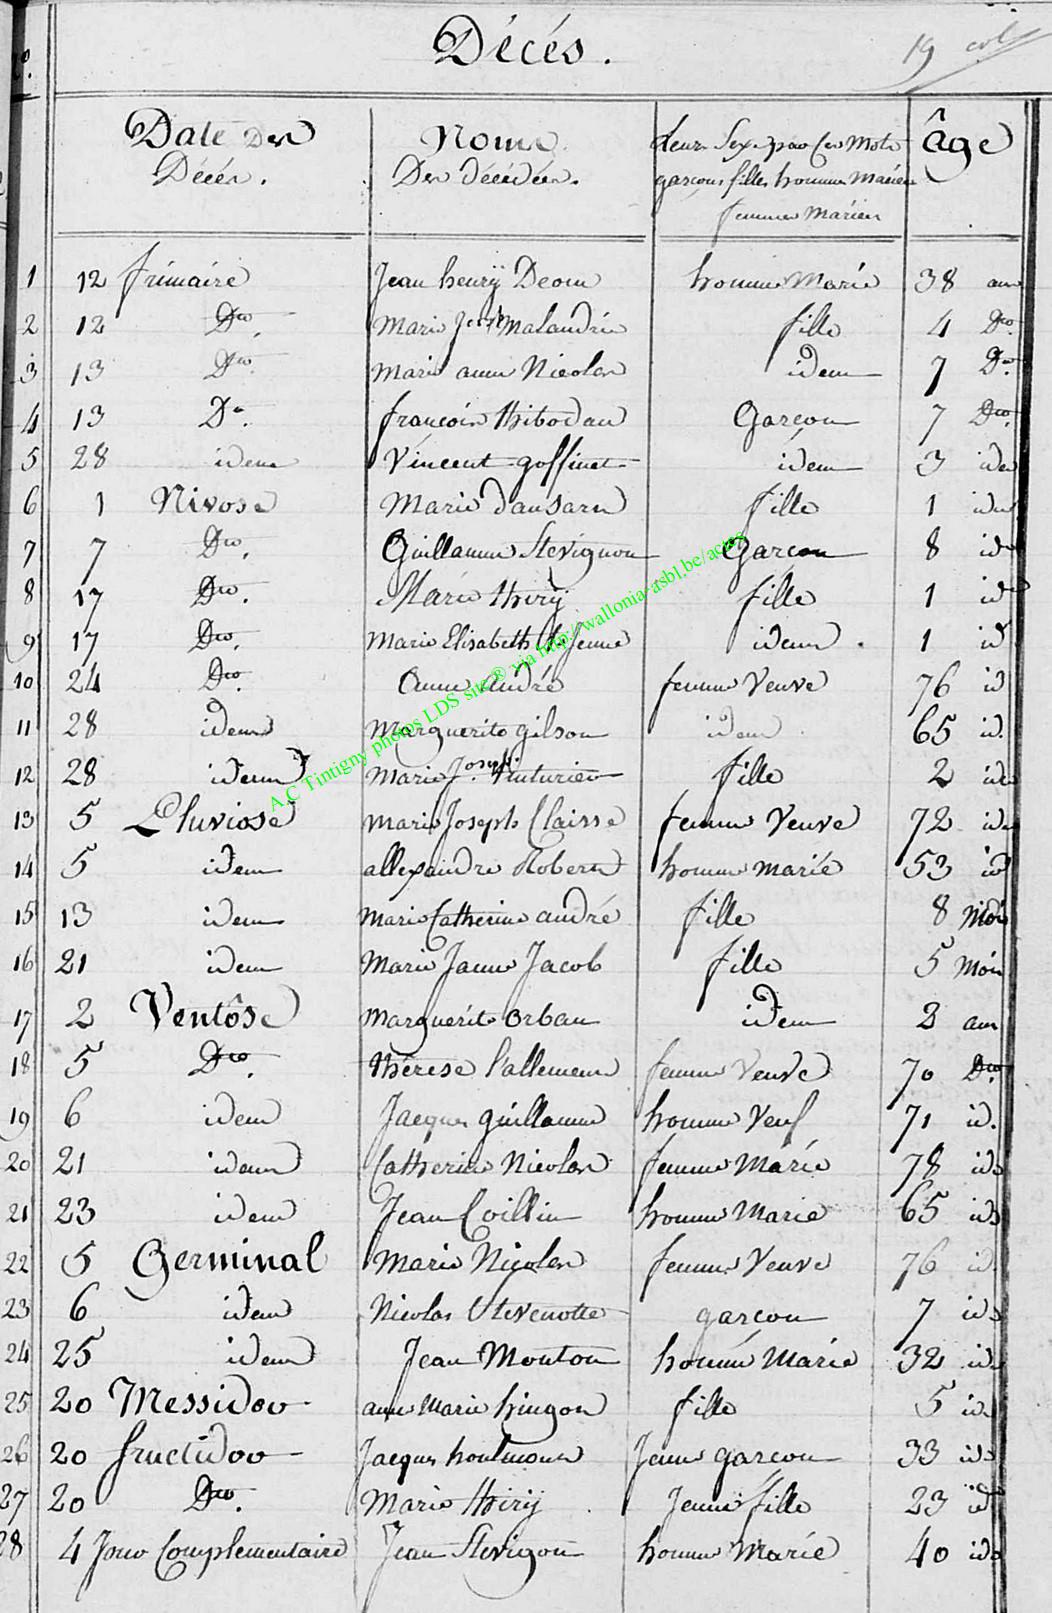 Décés.
19
Date Des
Décés.
Noms
Des décédés.
leurs Sexe par les Mots
garçons filles hommes Mariés
femmes Mariées
âge
1 12 frimaire Jean henry Deom homme Marié 38 ans
2 12 Dto. Marie Jph Malandrie fille 4 Dto.
3 13 Dto. marie anne Nicolas idem 7 Do.
4 13 Do. françois thibodau Garçon 7 Dto.
5 28 idem Vincent goffinet idem 3 idem
6 1 Nivose Marie dausart fille 1 idem
7 7 Dto. Guillaume Stevignon Garçon 8 id
8 17 Dto. Marie thiry fille 1 id
9 17 Dto. Marie Elisabeth le Jeune idem 1 id
10 24 Dto. Anne andré femme Veuve 76 id
11 28 idem Marguerite gilson idem 65 id.
12 28 idem marie Joseph fille 2 ide
13 5 Pluviose marie Joseph Claisse femme Veuve 72 ide
14 5 idem allexandre Robert homme marié 53 id
15 13 idem Marie Catherine andré fille 8 Mois
16 21 idem Marie Janne Jacob fille 5 Mois
17 2 Ventôse Marguerite Orban idem 2 ans
18 5 Dto. thérese l'allemend femme Veuve 70 Dto.
19 6 idem Jacques guillaume homme Veuf 71 id.
20 21 idem Catherine Nicolas femme Marié 78 ide
21 23 idem Jean Coillin homme Marié 65 ide
22 5 Germinal Marie Nicolas femme Veuve 76 id
23 6 idem Nicolas Stevenotte garcon 7 ide
24 25 idem Jean Mouton homme Marié 32 ide
25 20 Messidor anne Marie hingon fille 5 ide
26 20 fructidor Jacques Jeune garcon 33 ide
27 20 Dto. Marie thiry Jeune fille 23 id
28 4 Jour Complementaire Jean Stevignon homme Marié 40 ide
A.C Tintigny photos LDS site® via http://wallonia-asbl.be/actes